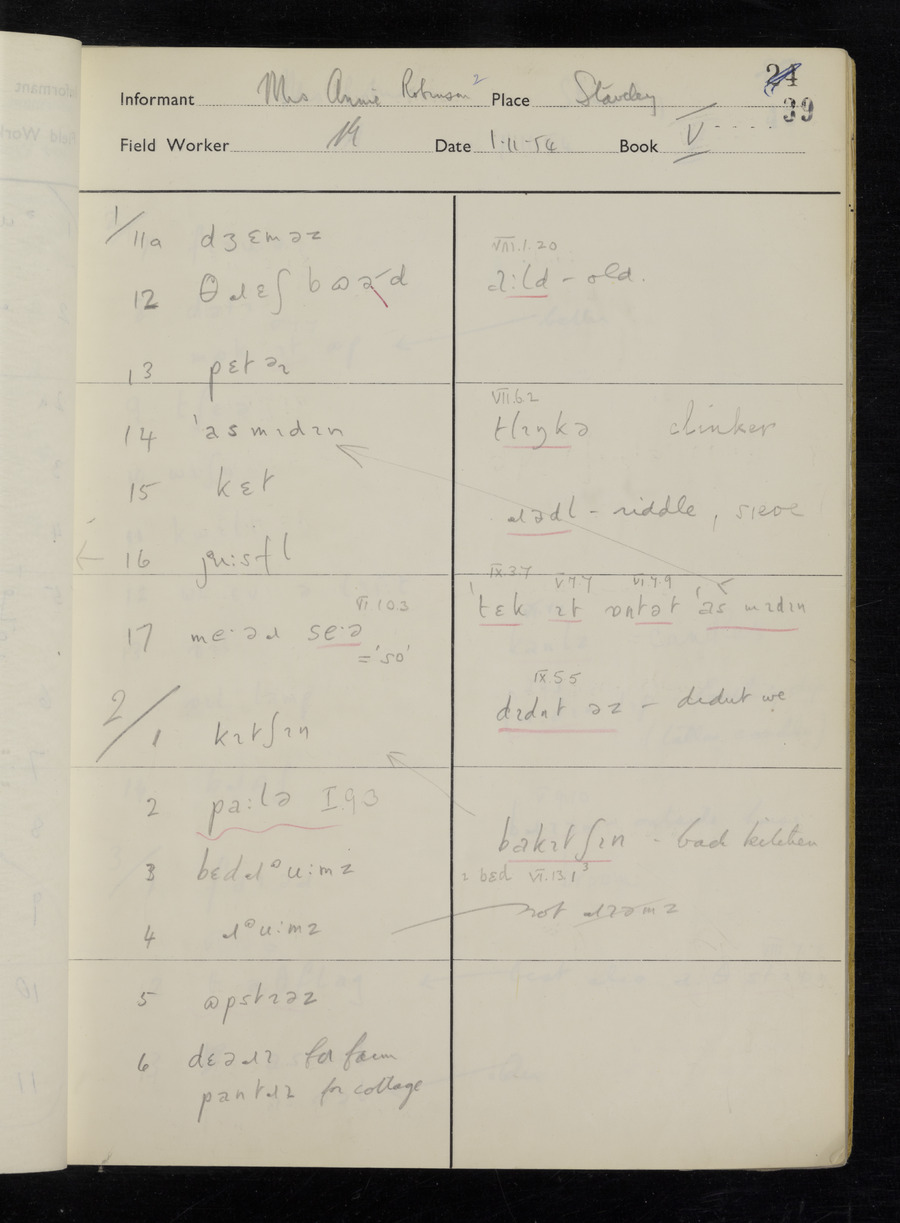 24
39
Informant Mrs Annie Robinson 2 Place Staveley
Field Worker Date 1·11·54 Book V
1/11a dʒɛməz
12 θɹɛʃ bɷəd
13 pɛtəɪ
14 ˈasmɪdɪn
15 kɛt
16
17 me·əɹ se·ə VI.10.3
='so'
2/1 kɪtʃɪn
2 pa:lə I.9.3
3 bɛdɹᵊu:mz
4 ɹᵊu:mz
5 ɷpstɪəz
6 dɛəɹɪ for farm
pantɹɪ for cottage
VIII.1.20
a:ld – old.
VII.6.2
tlɪŋkə clinker
ɹədl – riddle, sieve
IX.3.7 V.7.7 VI.7.9
ˈtɛk ɪt ɒntət ˈas mɪdɪn
IX.5.5
dɪdnt əz – didnt we
bakɪtʃɪn - bad kitchen
bɛd VI.13.1³
not ɹɪəmz